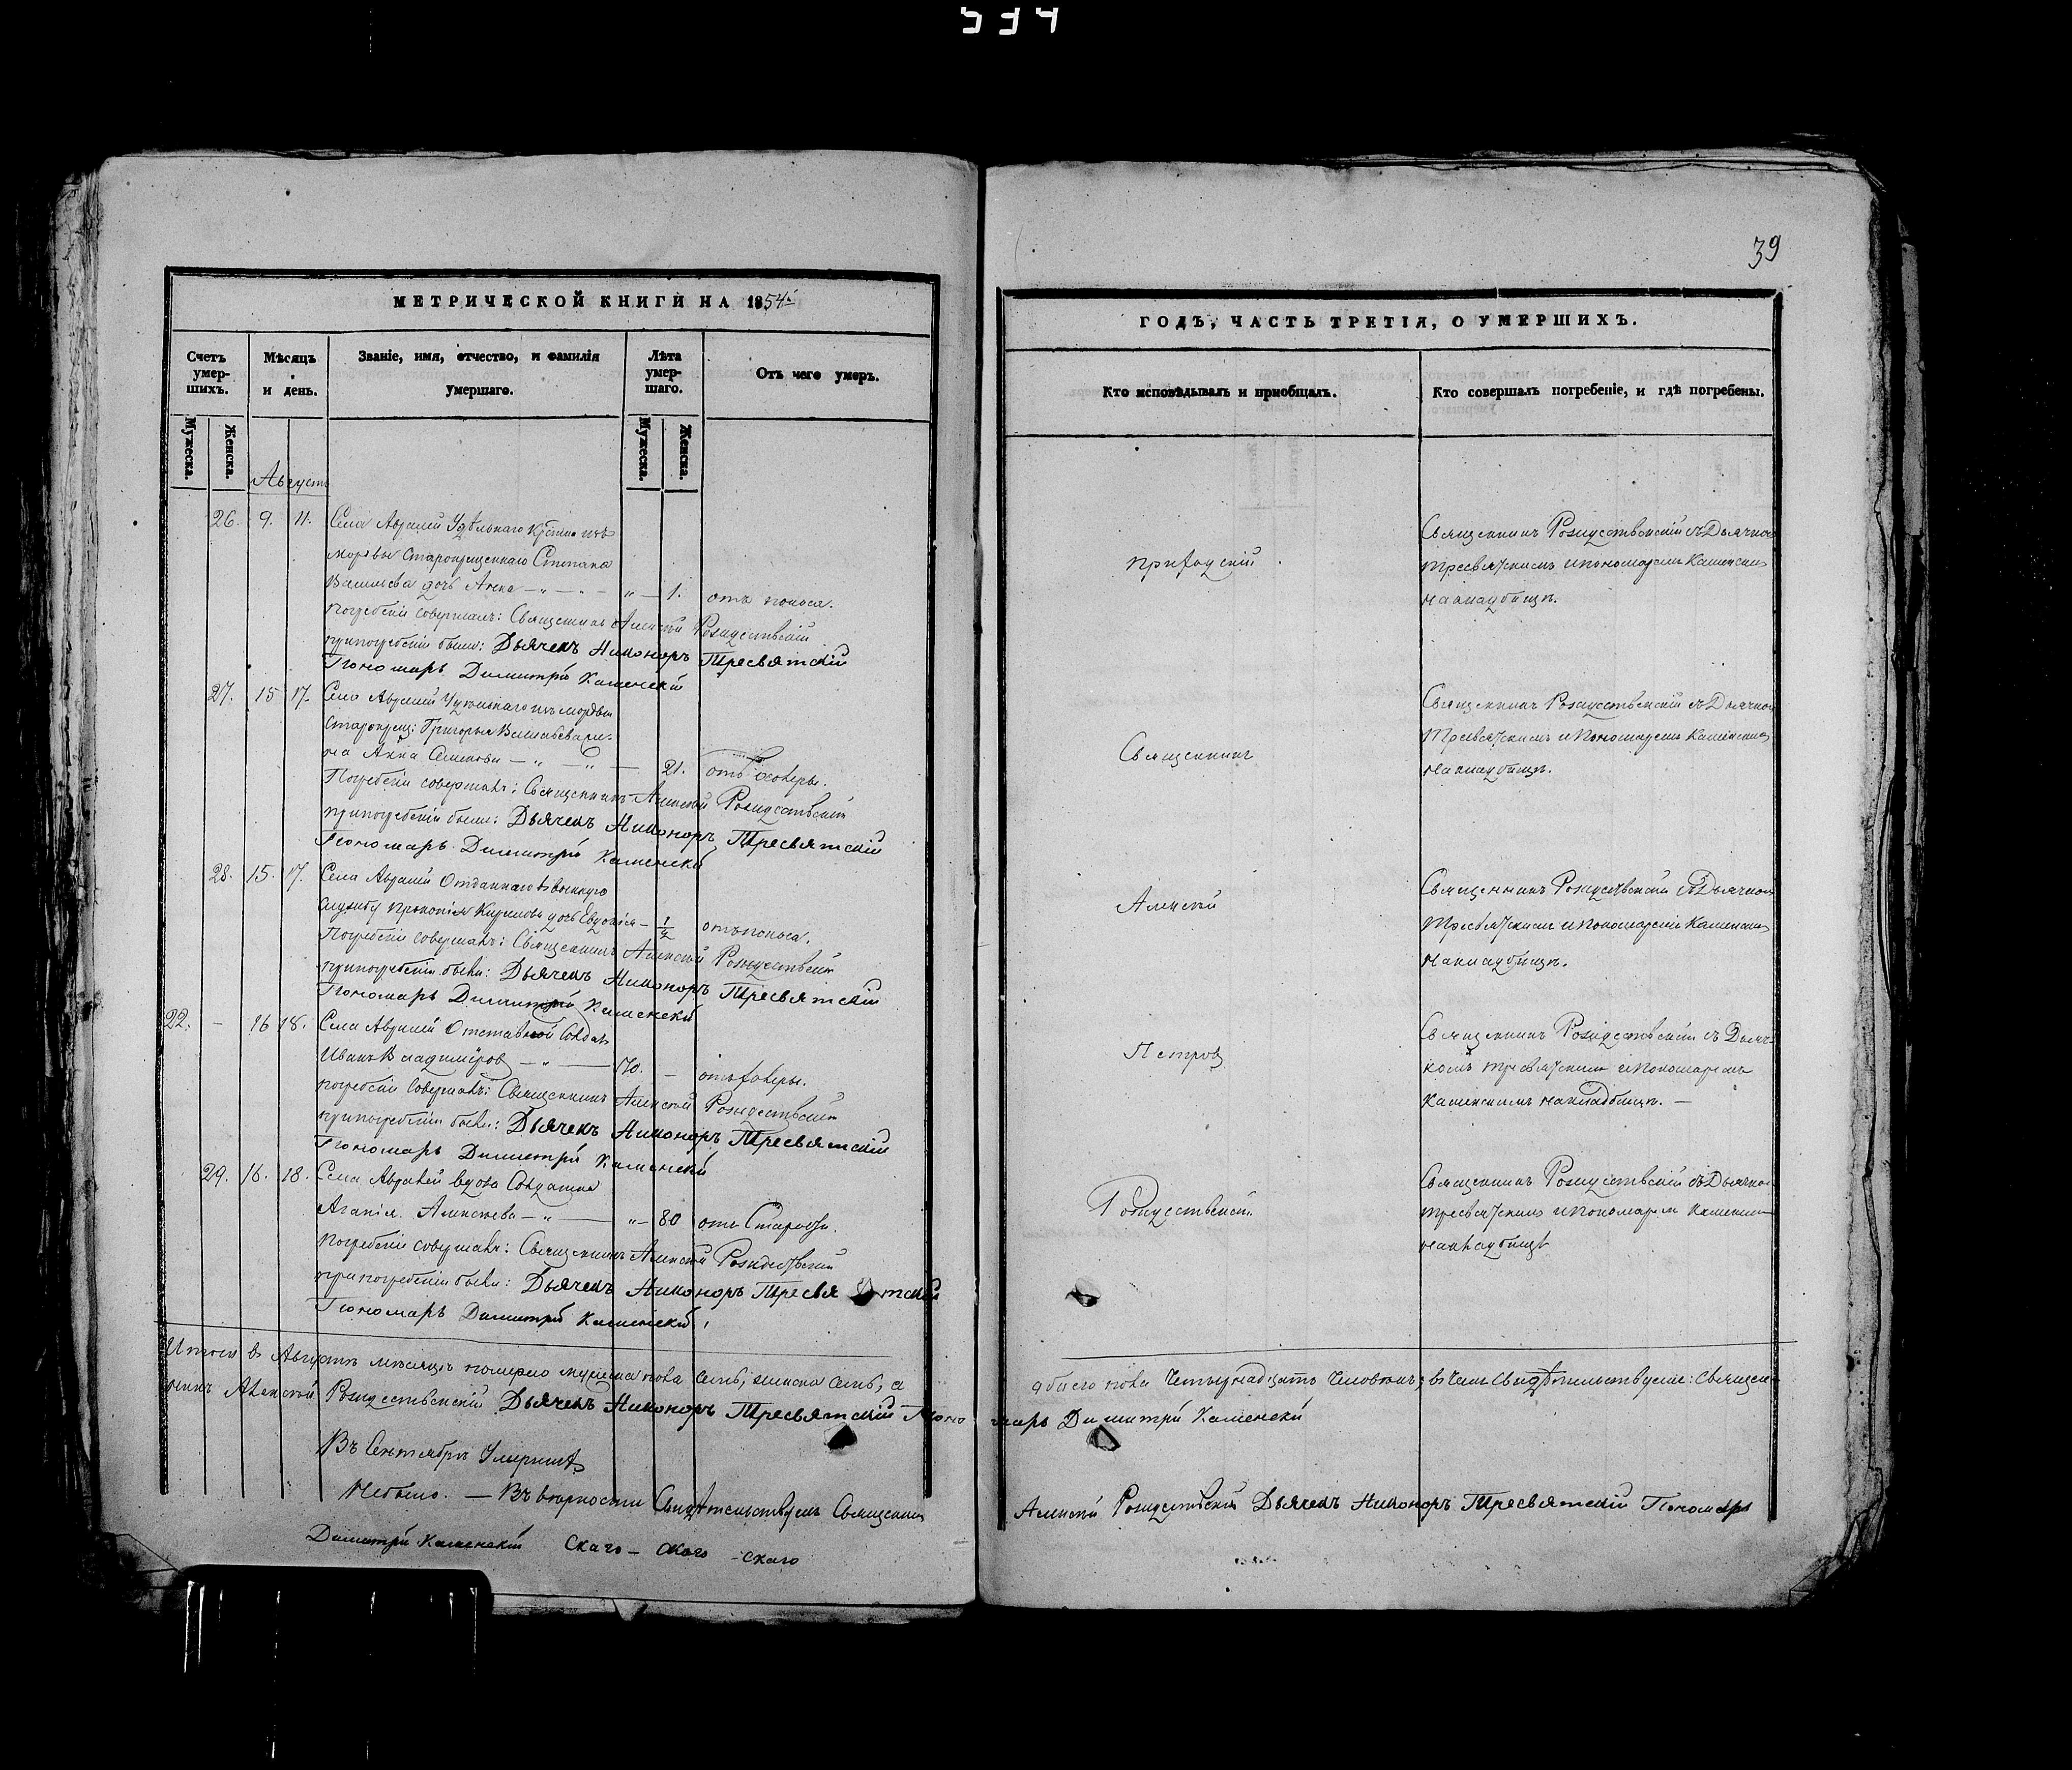 534
39
МЕТРИЧЕСКОЙ КНИГИ НА 1854й
Счетъ умер-шихъ.
Мѣсяцъ и день.
Званіе, имя, отчество, и фамилія умершаго.
Лѣта умер-шаго.
Отъ чего умеръ.
Мужеска.
Женска.
Мужеска.
Женска.
Августъ
26. 9. 11. Села Авралей Удѣльнаго Крѣстьянина изъ
мордвы Старокрещеннаго Степана
Васильева дочь Анна — 1. отъ поноса.
Погребеніе совершалъ: Священникъ Алексѣй Рождественскій
при погребеніи были: Дьячекъ Никоноръ Тресвятскій
Пономарь Димитрій Каменскій
27. 15 17. Села Авралей Удѣльнаго изъ мордвы
Старокрещ: Григорья Васильева же-
на Анна Семенова — 21. отъ холеры.
Погребеніе совершалъ: Священникъ Алексѣй Рождественскій
при погребеніи были: Дьячекъ Никоноръ Тресвятскій
Пономарь Димитрій Каменскій
28. 15. 17. Села Авралей Отданнаго въ военную
службу Прокопія Кирилова дочь Евдокія — 1/2 отъ поноса.
Погребеніе совершалъ: Священникъ Алексѣй Рождественскій
при погребеніи были: Дьячекъ Никоноръ Тресвятскій
Пономарь Димитрій Каменскій
22. — 16 18. Села Авралей Отставной Солдатъ
Иванъ Владиміровъ — 70. — отъ холеры.
Погребеніе совершалъ: Священникъ Алексѣй Рождественскій
при погребеніи были: Дьячекъ Никоноръ Тресвятскій
Пономарь Димитрій Каменскій
29. 16. 18. Села Авралей вдова Солдатка
Агапія Алексѣева — 80 отъ Старости.
Погребеніе совершалъ: Священникъ Алексѣй Рождественскій
при погребеніи были: Дьячекъ Никоноръ Тресвятскій
Пономарь Димитрій Каменскій
Итого въ Августѣ мѣсяцѣ померло мужеска пола семь, женска семь, а
никъ Алексѣй Рождественскій Дьячекъ Никоноръ Тресвятскій Поно
Въ Сентябрѣ Умершихъ
Небыло. — Въ вѣрности Свидѣтельствуемъ Священникъ
Димитрій Каменскій скаго — скаго — скаго
ГОДЪ, ЧАСТЬ ТРЕТІЯ, О УМЕРШИХЪ.
Кто исповѣдывалъ и пріобщалъ.
Кто совершалъ погребеніе, и гдѣ погребены.
Приходскій
Священникъ Рождественскій съ Дьячкомъ
Тресвятскимъ и пономаремъ Каменскимъ
на кладбищѣ.
Священникъ
Священникъ Рождественскій съ Дьячкомъ
Тресвятскимъ и Пономаремъ Каменскимъ
на кладбищѣ.
Алексѣй
Священникъ Рождественскій съ Дьячкомъ
Тресвятскимъ и Пономаремъ Каменскимъ
на кладбищѣ.
Петровъ
Священникъ Рождественскій съ Дьяч-
комъ Тресвятскимъ и пономаремъ
Каменскимъ на кладбищѣ. —
Рождественскій
Священникъ Рождественскій съ Дьячкомъ
Тресвятскимъ и Пономаремъ Каменским
на кладбищѣ
обоего пола Четырнадцать Человѣкъ; въ чемъ Свидѣтельствуемъ: Священ-
марь Димитрій Каменскій
Алексѣй Рождественскій Дьячекъ Никоноръ Тресвятскій Пономарь